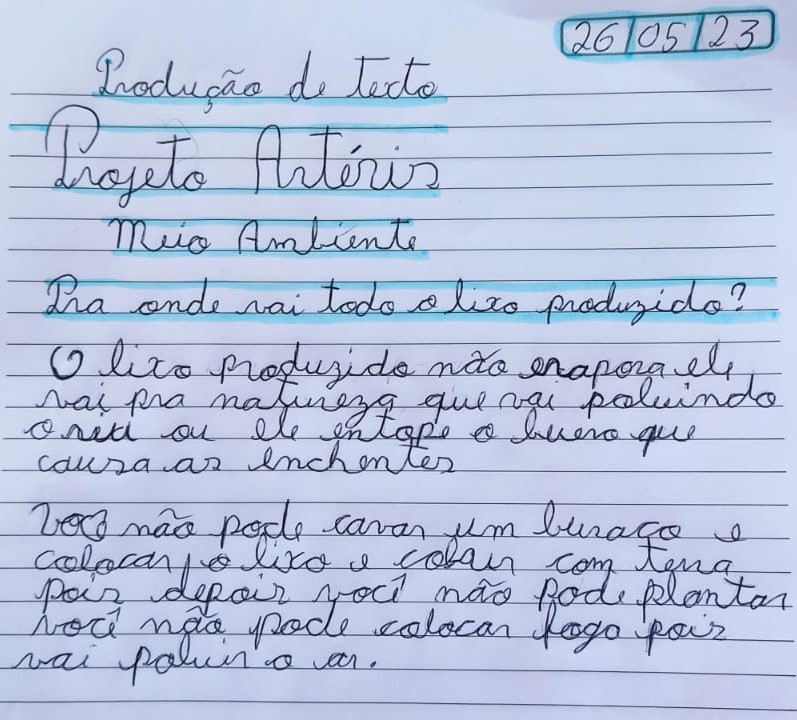 26/05/23
Produção de texto
Projeto Artéris
Meio Ambiente
Pra onde vai todo o lixo produzido?
O lixo produzido não evapora ele
vai pra natureza que vai poluindo
o ou ele entope o buero que
causa as enchentes
Você não pode cavar um buraco e
colocar o lixo e cobrir com terra
pois depois você não pode plantar
você não pode colocar fogo pois
vai poluir o ar.